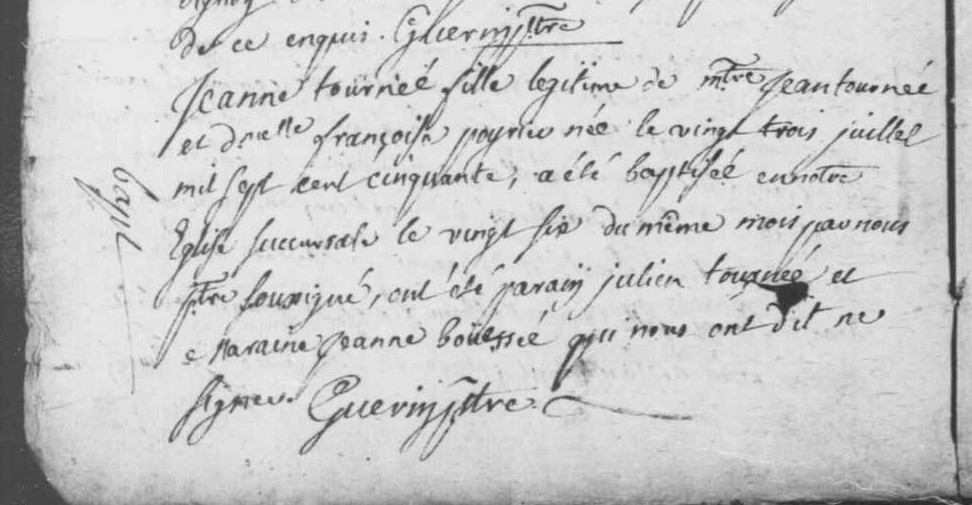 de ce enquis. Guerin ptre
Jeanne tournéé fille legitime de mtre Jean tournéé
et dmelle françoise poyrier née le vingt trois juillet
mil sept cent cinquante, a été baptisée en notre
bapt
Eglise succursale le vingt six du même mois par nous
ptre soussigné, ont été parain julien tournéé et
maraine Jeanne boüessée qui nous ont dit ne
signer. Guerin ptre